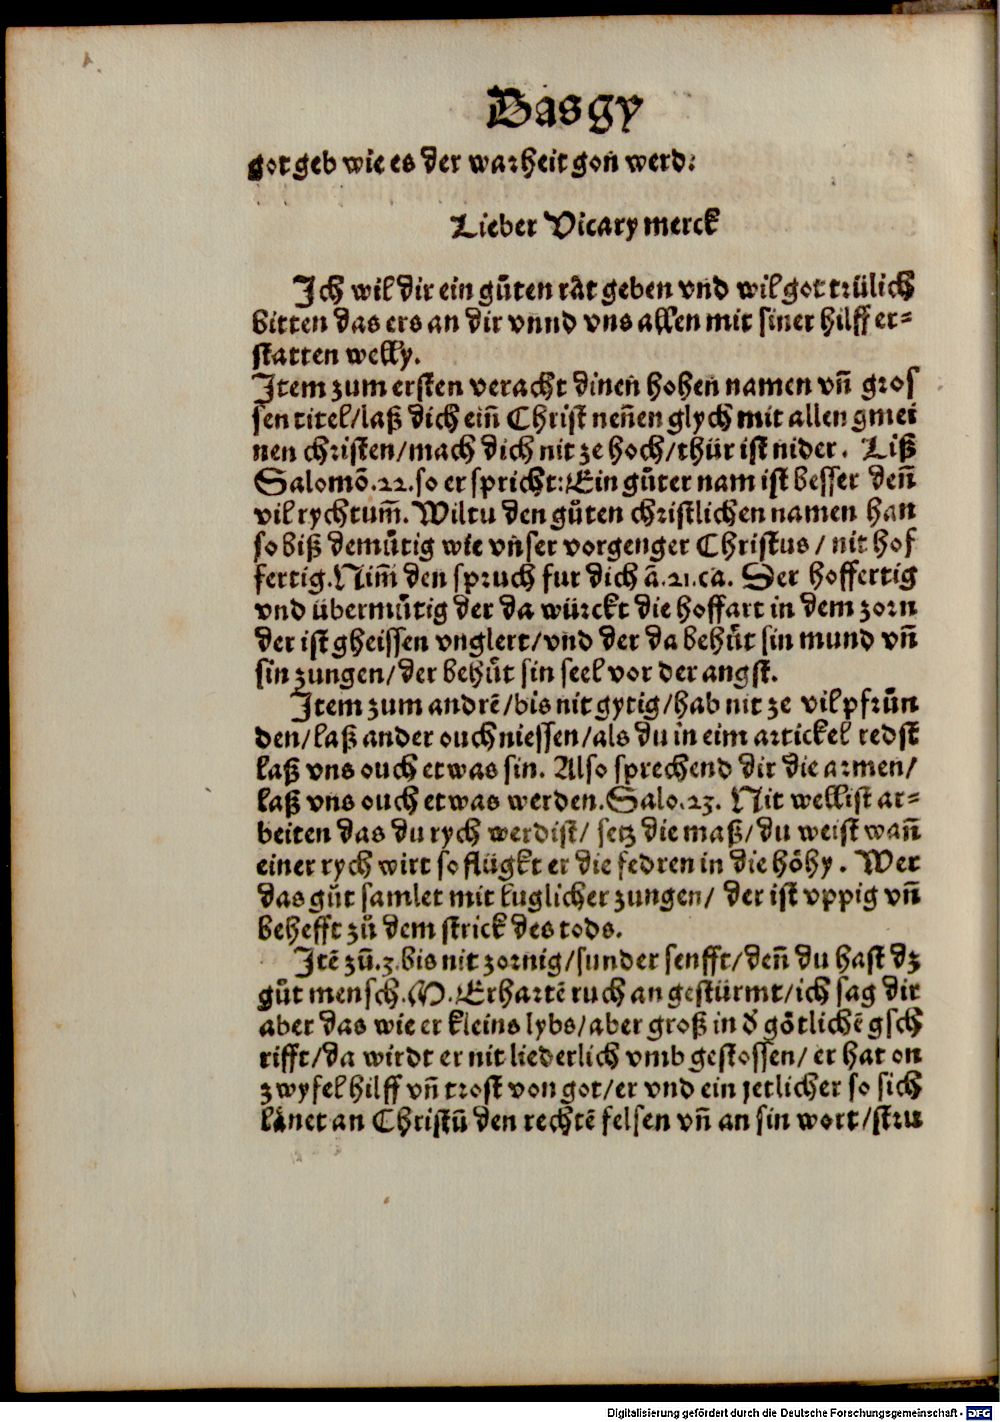 Das gy
got geb wie es der warheit gon werd:
Lieber Vicary merck
Ich wil dir ein gůten råt geben vnd wil got trülich
bitten das ers an dir vnnd vns allen mit siner hilff er⸗
statten welly.
Item zum ersten veracht dinen hohen namen vn̄ gros
sen titel/laß dich ein̄ Christ nen̄en glych mit allen gmei
nen christen/mach dich nit ze hoch/thür ist nider. Liß
Salomō.22.so er spricht:Ein gůter nam ist besser den̄
vil rychtum̄. Wiltu den gůten christlichen namen han
so biß demůtig wie vnser vorgenger Christus / nit hof
fertig. Nim̄ den spruch fur dich ā.21.ca. Der hoffertig
vnd übermůtig der da würckt die hoffart in dem zorn
der ist gheissen vnglert/vnd der da behůt sin mund vn̄
sin zungen/der behůt sin seel vor der angst.
Item zum andrē/bis nit gytig/hab nit ze vil pfrůn
den/laß ander ouch niessen/als du in eim artickel redst
laß vns ouch etwas sin. Also sprechend dir die armen/
laß vns ouch etwas werden. Salo.23. Nit wellist ar⸗
beiten das du rych werdist/ setz die maß/du weist wan̄
einer rych wirt so flügkt er die fedren in die höhy. Wer
das gůt samlet mit luglicher zungen/ der ist vppig vn̄
behefft zů dem strick des tods.
Itē zū.3.bis nit zornig/sunder senfft/den̄ du hast dz
gůt mensch.M.Erhartē ruch an gestürmt/ich sag dir
aber das wie er kleins lybs/aber groß in d̕ götlichē gsch
rifft/da wirdt er nit liederlich vmb gestossen/ er hat on
zwyfel hilff vn̄ trost von got/er vnd ein jetlicher so sich
länet an Christū den rechtē felsen vn̄ an sin wort/stru
Digitalisierung gefördert durch die Deutsche Forschungsgemeinschaft - DFG